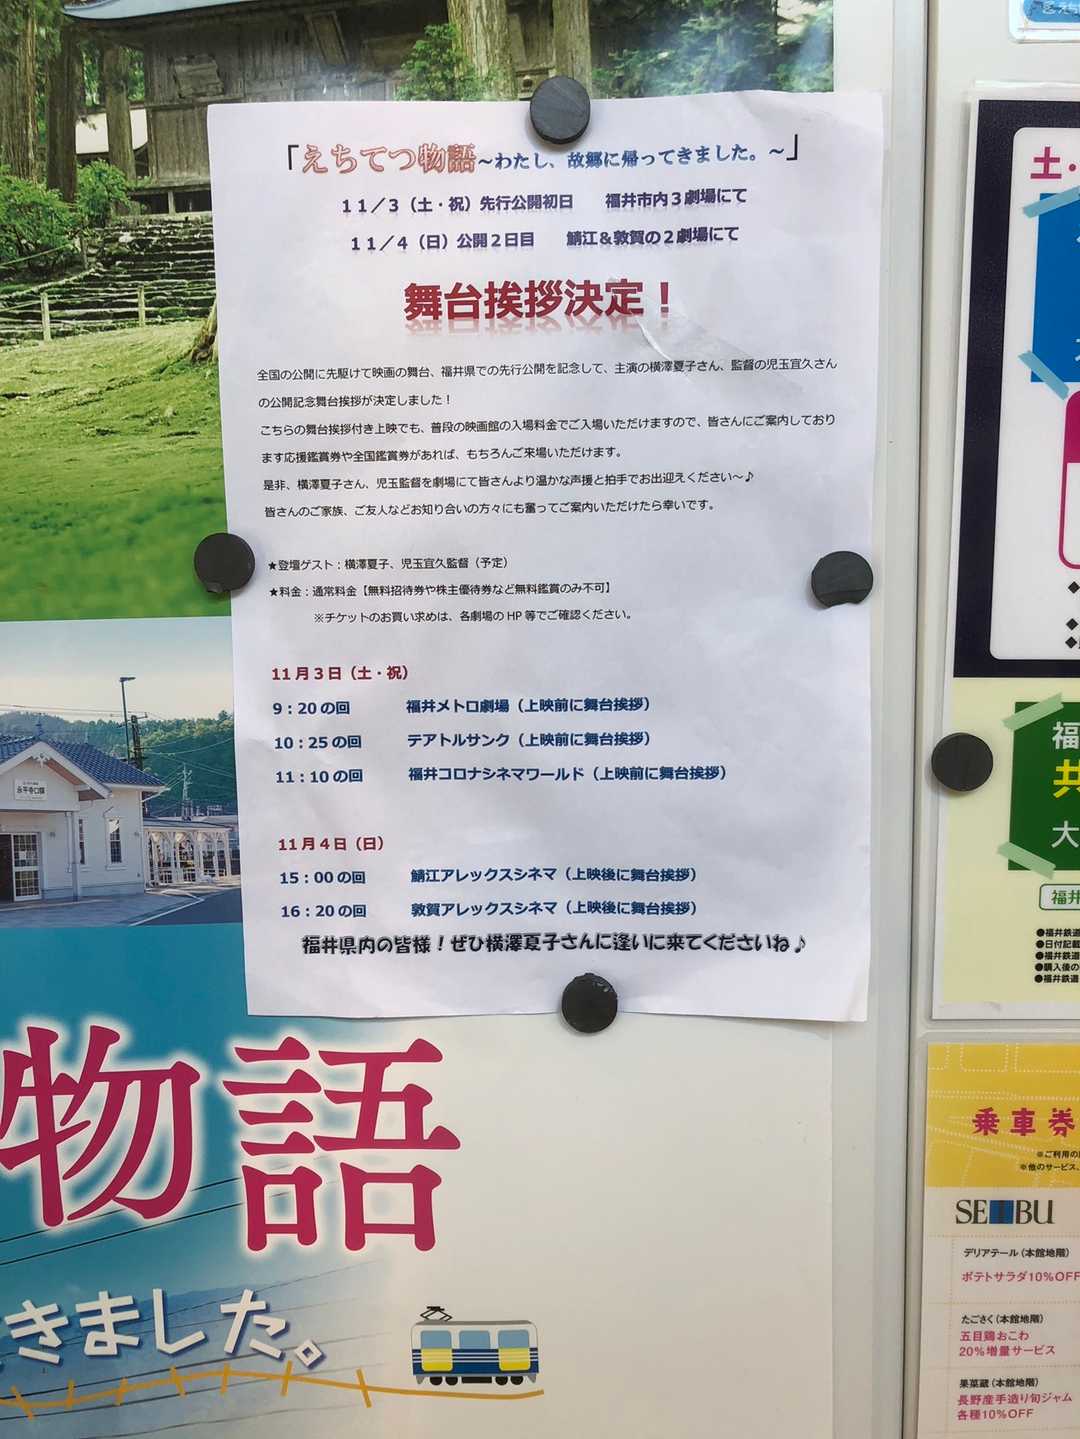 「えちてつ物語～わたし、故郷に帰ってきました。～」
11／3（土・祝）先行公開初日　福井市内3劇場にて
11／4（日）公開2日目　鯖江＆敦賀の2劇場にて
舞台挨拶決定！
全国の公開に先駆けて映画の舞台、福井県での先行公開を記念して、主演の横澤夏子さん、監督の児玉宜久さん
の公開記念舞台挨拶が決定しました！
こちらの舞台挨拶付き上映でも、普段の映画館の入場料金でご入場いただけますので、皆さんにご案内しており
ます応援鑑賞券や全国鑑賞券があれば、もちろんご来場いただけます。
是非、横澤夏子さん、児玉監督を劇場にて皆さんより温かな声援と拍手でお出迎えください～♪
皆さんのご家族、ご友人などお知り合いの方々にも奮ってご案内いただけたら幸いです。
★登壇ゲスト：横澤夏子、児玉宜久監督（予定）
★料金：通常料金【無料招待券や株主優待券など無料鑑賞のみ不可】
※チケットのお買い求めは、各劇場のHP等でご確認ください。
11月3日（土・祝）
9：20の回　福井メトロ劇場（上映前に舞台挨拶）
10：25の回　テアトルサンク（上映前に舞台挨拶）
11：10の回　福井コロナシネマワールド（上映前に舞台挨拶）
11月4日（日）
15：00の回　鯖江アレックスシネマ（上映後に舞台挨拶）
16：20の回　敦賀アレックスシネマ（上映後に舞台挨拶）
福井県内の皆様！ぜひ横澤夏子さんに逢いに来てくださいね♪
永平寺口駅
物語
きました。
土・
福
共
大
福井
●福井鉄道
●日付記載
●福井鉄道
●購入後の
●福井鉄道
乗車券
※ご利用の
※他のサービス、
SEIBU
デリアテール（本館地階）
ポテトサラダ10%OFF
たごさく（本館地階）
五目鶏おこわ
20%増量サービス
果菜蔵（本館地階）
長野産手造り旬ジャム
各種10%OFF